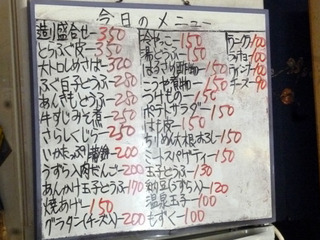 今日のメニュー
造り盛合せ 350
とらふぐ皮 350
大トロしめさば 320
ふぐ白子とうふ 280
あんきもとうふ 250
牛すじみそ煮 250
さらしくじら 250
いかたっぷり 200
うずら入肉だんご 200
あんかけ玉子とうふ 170
焼あげ 150
グラタン(チーズ入) 200
冷やっこ 150
湯どうふ 150
はるさめ酢物 150
150
150
ポテトサラダ 150
はも皮 150
ちりめん大根おろし 150
ミートスパゲティ 150
玉子とうふ 130
納豆(うずら入) 120
温泉玉子 100
もずく 100
100
100
ウインナー 100
チーズ 90